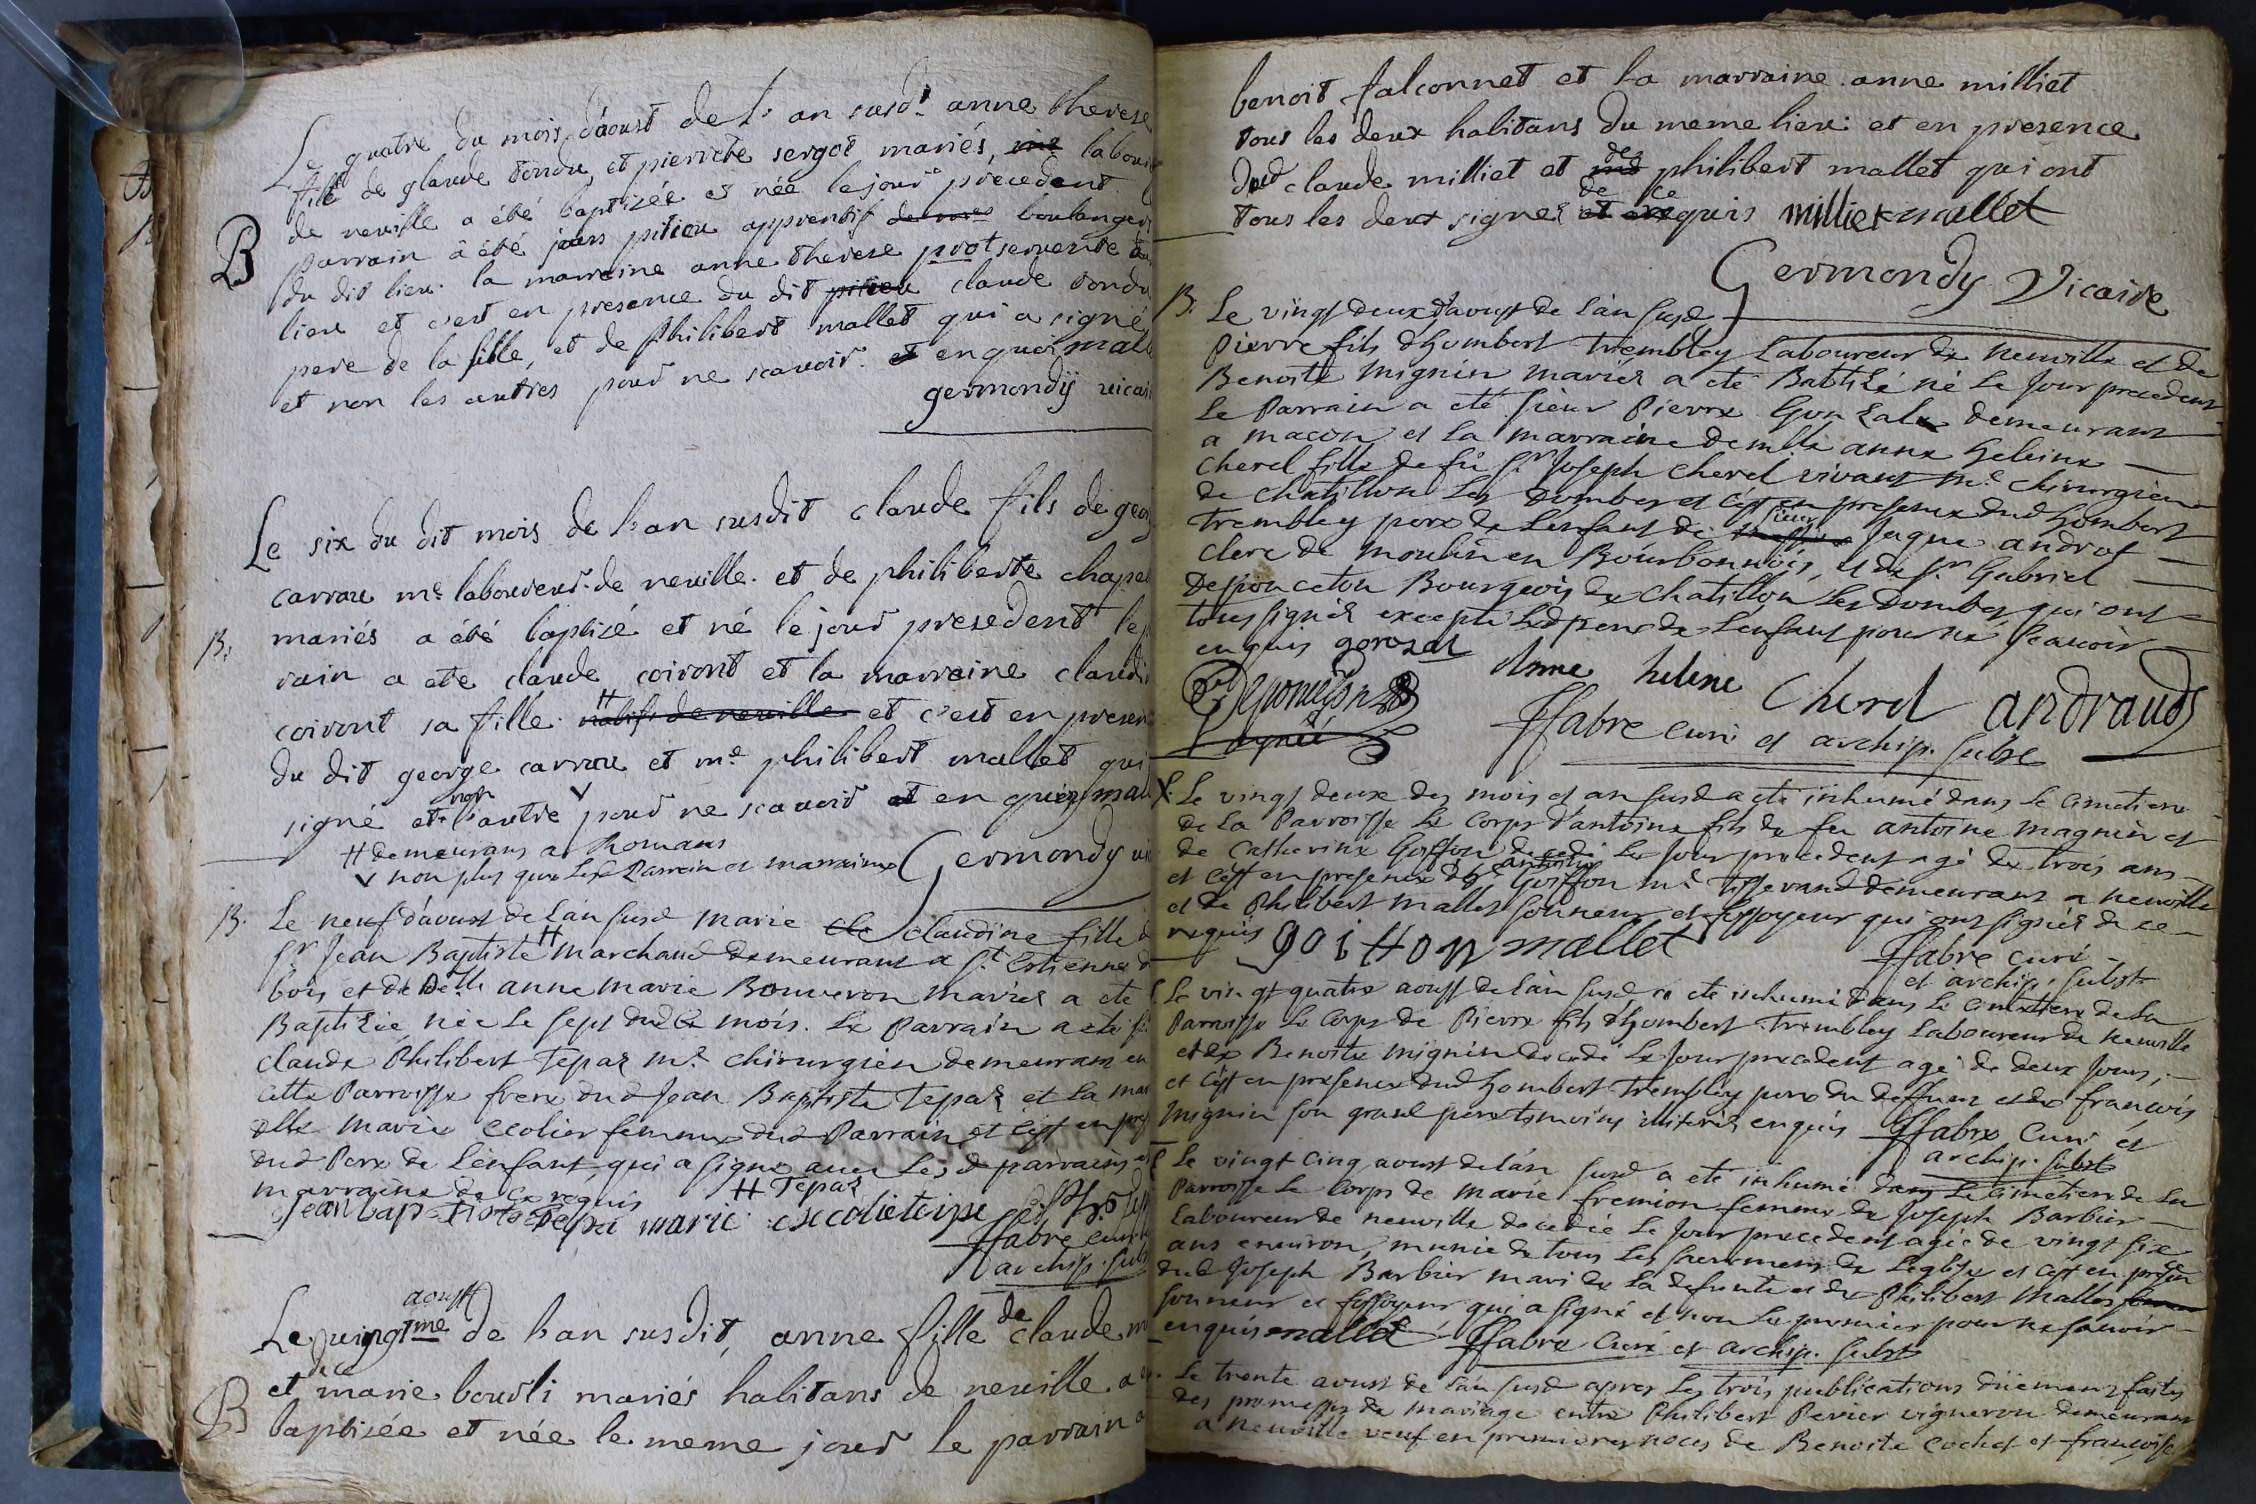 Le quatre du mois d'aoust de l'an susdt anne therese
fille de glaude tondu, et pierrette sergot mariés, labour
de neuville a été baptizée et née le jour precedent.
B
parrain a été jans pitieu apprentif boulanger
du dit lieu. la marraine anne therese prot servente au
lieu et c'est en presence du dit claude tondu
pere de la fille, et de philibert mallet qui a signé
et non les autres pour ne scavoir. enquoi mall
germondÿ vicai
Le six du dit mois de l'an susdit claude fils de geor
carrou me laboureur de neuville. et de philiberte chape
B.
mariés a été baptizé et né le jour presedent le p
rain a ete claude coiront et la marraine claudi
coiront sa fille. # natifs de neuville et c'est en presen
du dit george carrou et me philibert mallet qui
signe et non l'autre v pour ne scavoir enquis mal
# demeurans a Romans
v non plus que les Parrein et marraine Germondy vi
B. Le neuf d'aoust de l'an susd marie claudine fille d
sr Jean Baptiste # marchand demeurant a st Estienne d
bois et de Delle anne marie Bouveron mariés a eté
Baptizée, née le sept dud mois. Le Parrain a eté s
claude Philibert Tepaz me chirurgien demeurant en
cette Parroisse frere dud Jean Baptiste Tepaz et la mar
delle marie ecolier femme dud Parrain et c'est en pres
dud Pere de l'enfant, qui a signe avec les d parrains et
marraine de ce requis # Tepaz
jean bap tiste Tepaz marie
ffabre curé
archip. subs
aoust
Le vingtme de l'an susdit, anne fille de claude m
et marie bourli mariés habitans de neuville a e
B
baptizée et née le meme jour le parrain a
benoit falconnet et la marraine anne milliet
tous les deux habitans du meme lieu. et en presence
dud claude milliet et de philibert mallet qui ont
tous les deux signes de ce quis milliet mallet
Germondy Vicaire
B. Le vingt deux d'aoust de l'an susd
Pierre fils d'hombert Trembley Laboureur de neuville et de
Benoite mignin mariés a eté Battizé né le jour precedent
Le Parrain a eté sieur Pierre demeurant
a macon et la marraine demlle anne heleine
Cherel fille de fû sr Joseph Cherel vivant me chirurgien
de chatillon les dombes et c'est en presence dud hombert
Trembley pere de l'enfant de sieur Jaque androt
clerc de moulin en Bourbonnois, et de sr Gabriel
Desponceton Bourgeois de chatillon les dombes qui ont
tous signés excepté led pere de l'enfant pour ne scavoir
enquis
Anne helene Cherel andraud
ffabre curé et archip. subst
Le vingt deux des mois et an susd a eté inhumé dans le cimetiere
de la Parroisse le corps d'antoine fils de feu antoine magnin et
de Catherine Goiffon decedé le jour precedent agé de trois ans
et c'est en presence de sr antoine Goiffon me Tisserand demeurant a neuville
et de Philibert mallet sonneur et fossoyeur qui ont signés de ce
requis goiffon mallet
ffabre curé
et archip. subst
Le vingt quatre aoust de l'an susd a eté inhumé dans le cimetiere de la
Parroisse le corps de Pierre fils d'hombert Trembley Laboureur de neuville
et de Benoite mignin decedé le jour precedent agé de deux jours,
et c'est en presence dud hombert Trembley pere du deffunt et de francois
mignin son grand pere temoins illiterés enquis ffabre curé et
archip. subst
Le vingt cinq aoust de l'an susd a eté inhumé dans le cimetiere de la
Parroisse le corps de marie fremion femme de Joseph Barbier
Laboureur de neuville decedée le jour precedent agée de vingt six
ans environ, munie de tous les sacremens de l'eglise et c'est en presence
dud Joseph Barbier mari de la defunte et de Philibert Mallet
sonneur et fossoyeur, qui a signé et non le premier pour ne scavoir
enquis mallet ffabre curé et archip. subst
Le trente aoust de l'an susd apres les trois publications düement faites
des promesses de mariage entre Philibert Perier vigneron demeurant
a neuville veuf en premieres noces de Benoite cochet et françoise